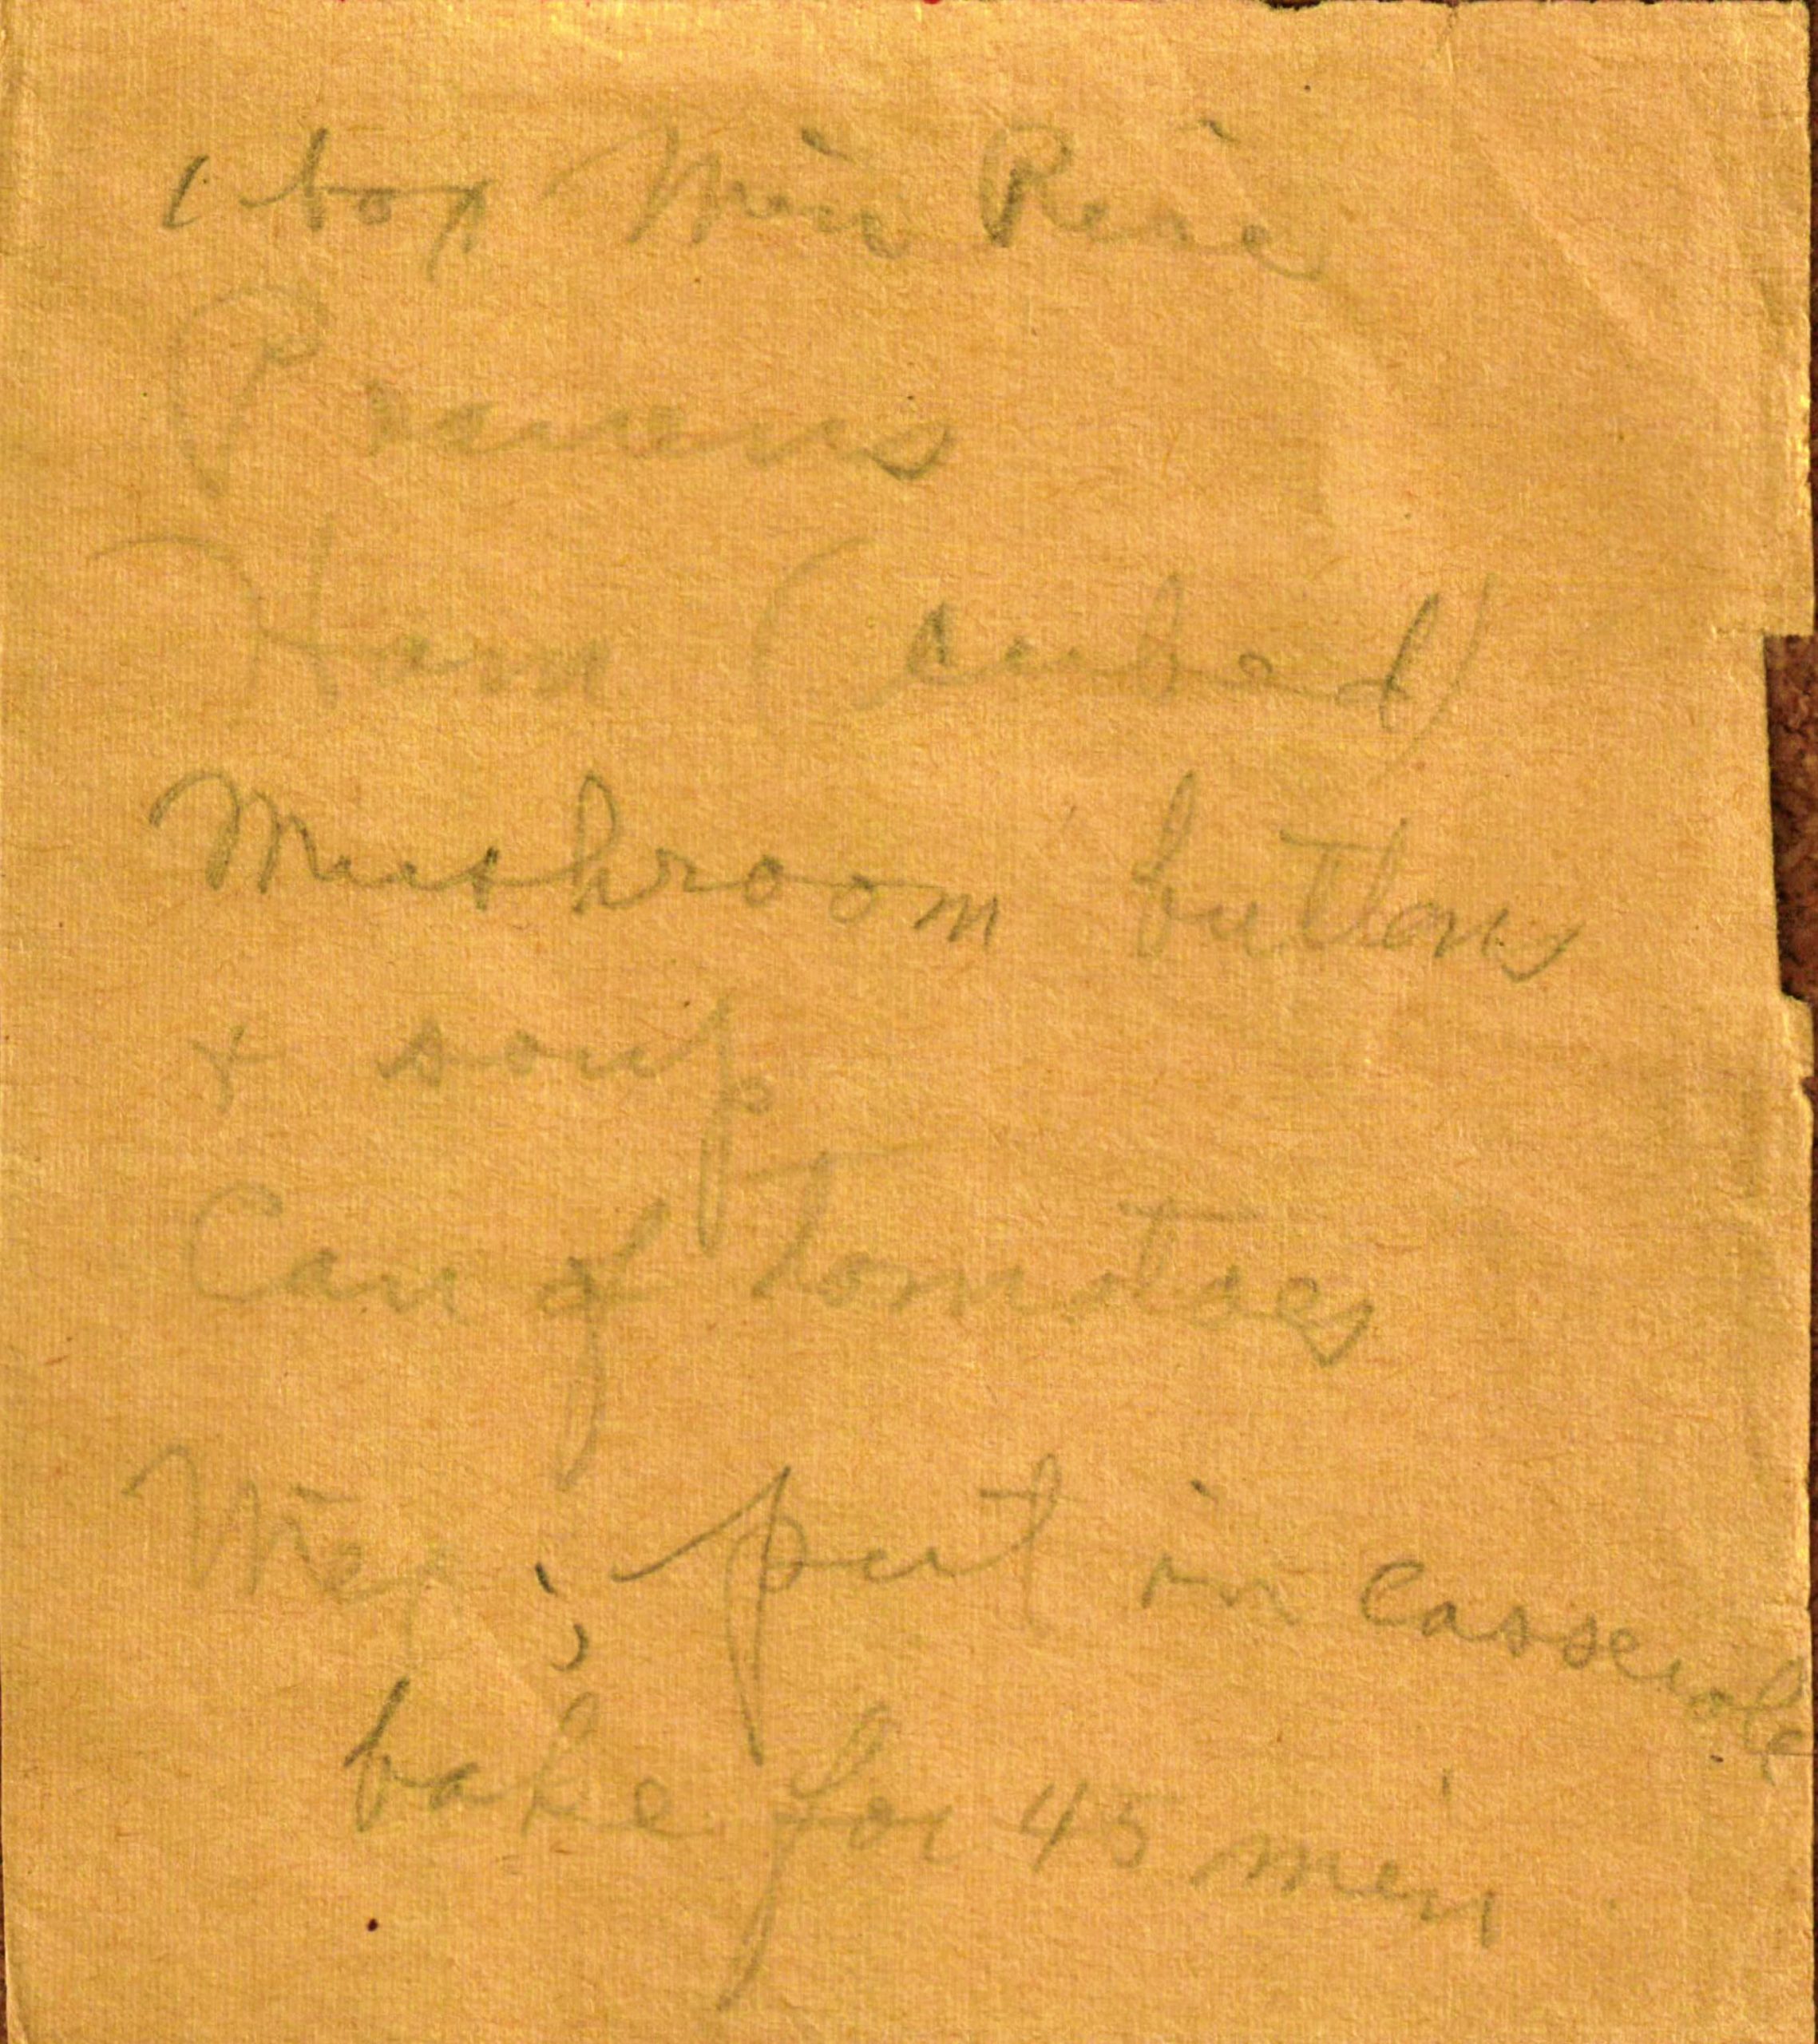 1 box Min Rice
Ham (cubed)
Mushroom buttons
+ soup
Can of Tomatoes
Mix, put in casserole
bake for 45 min